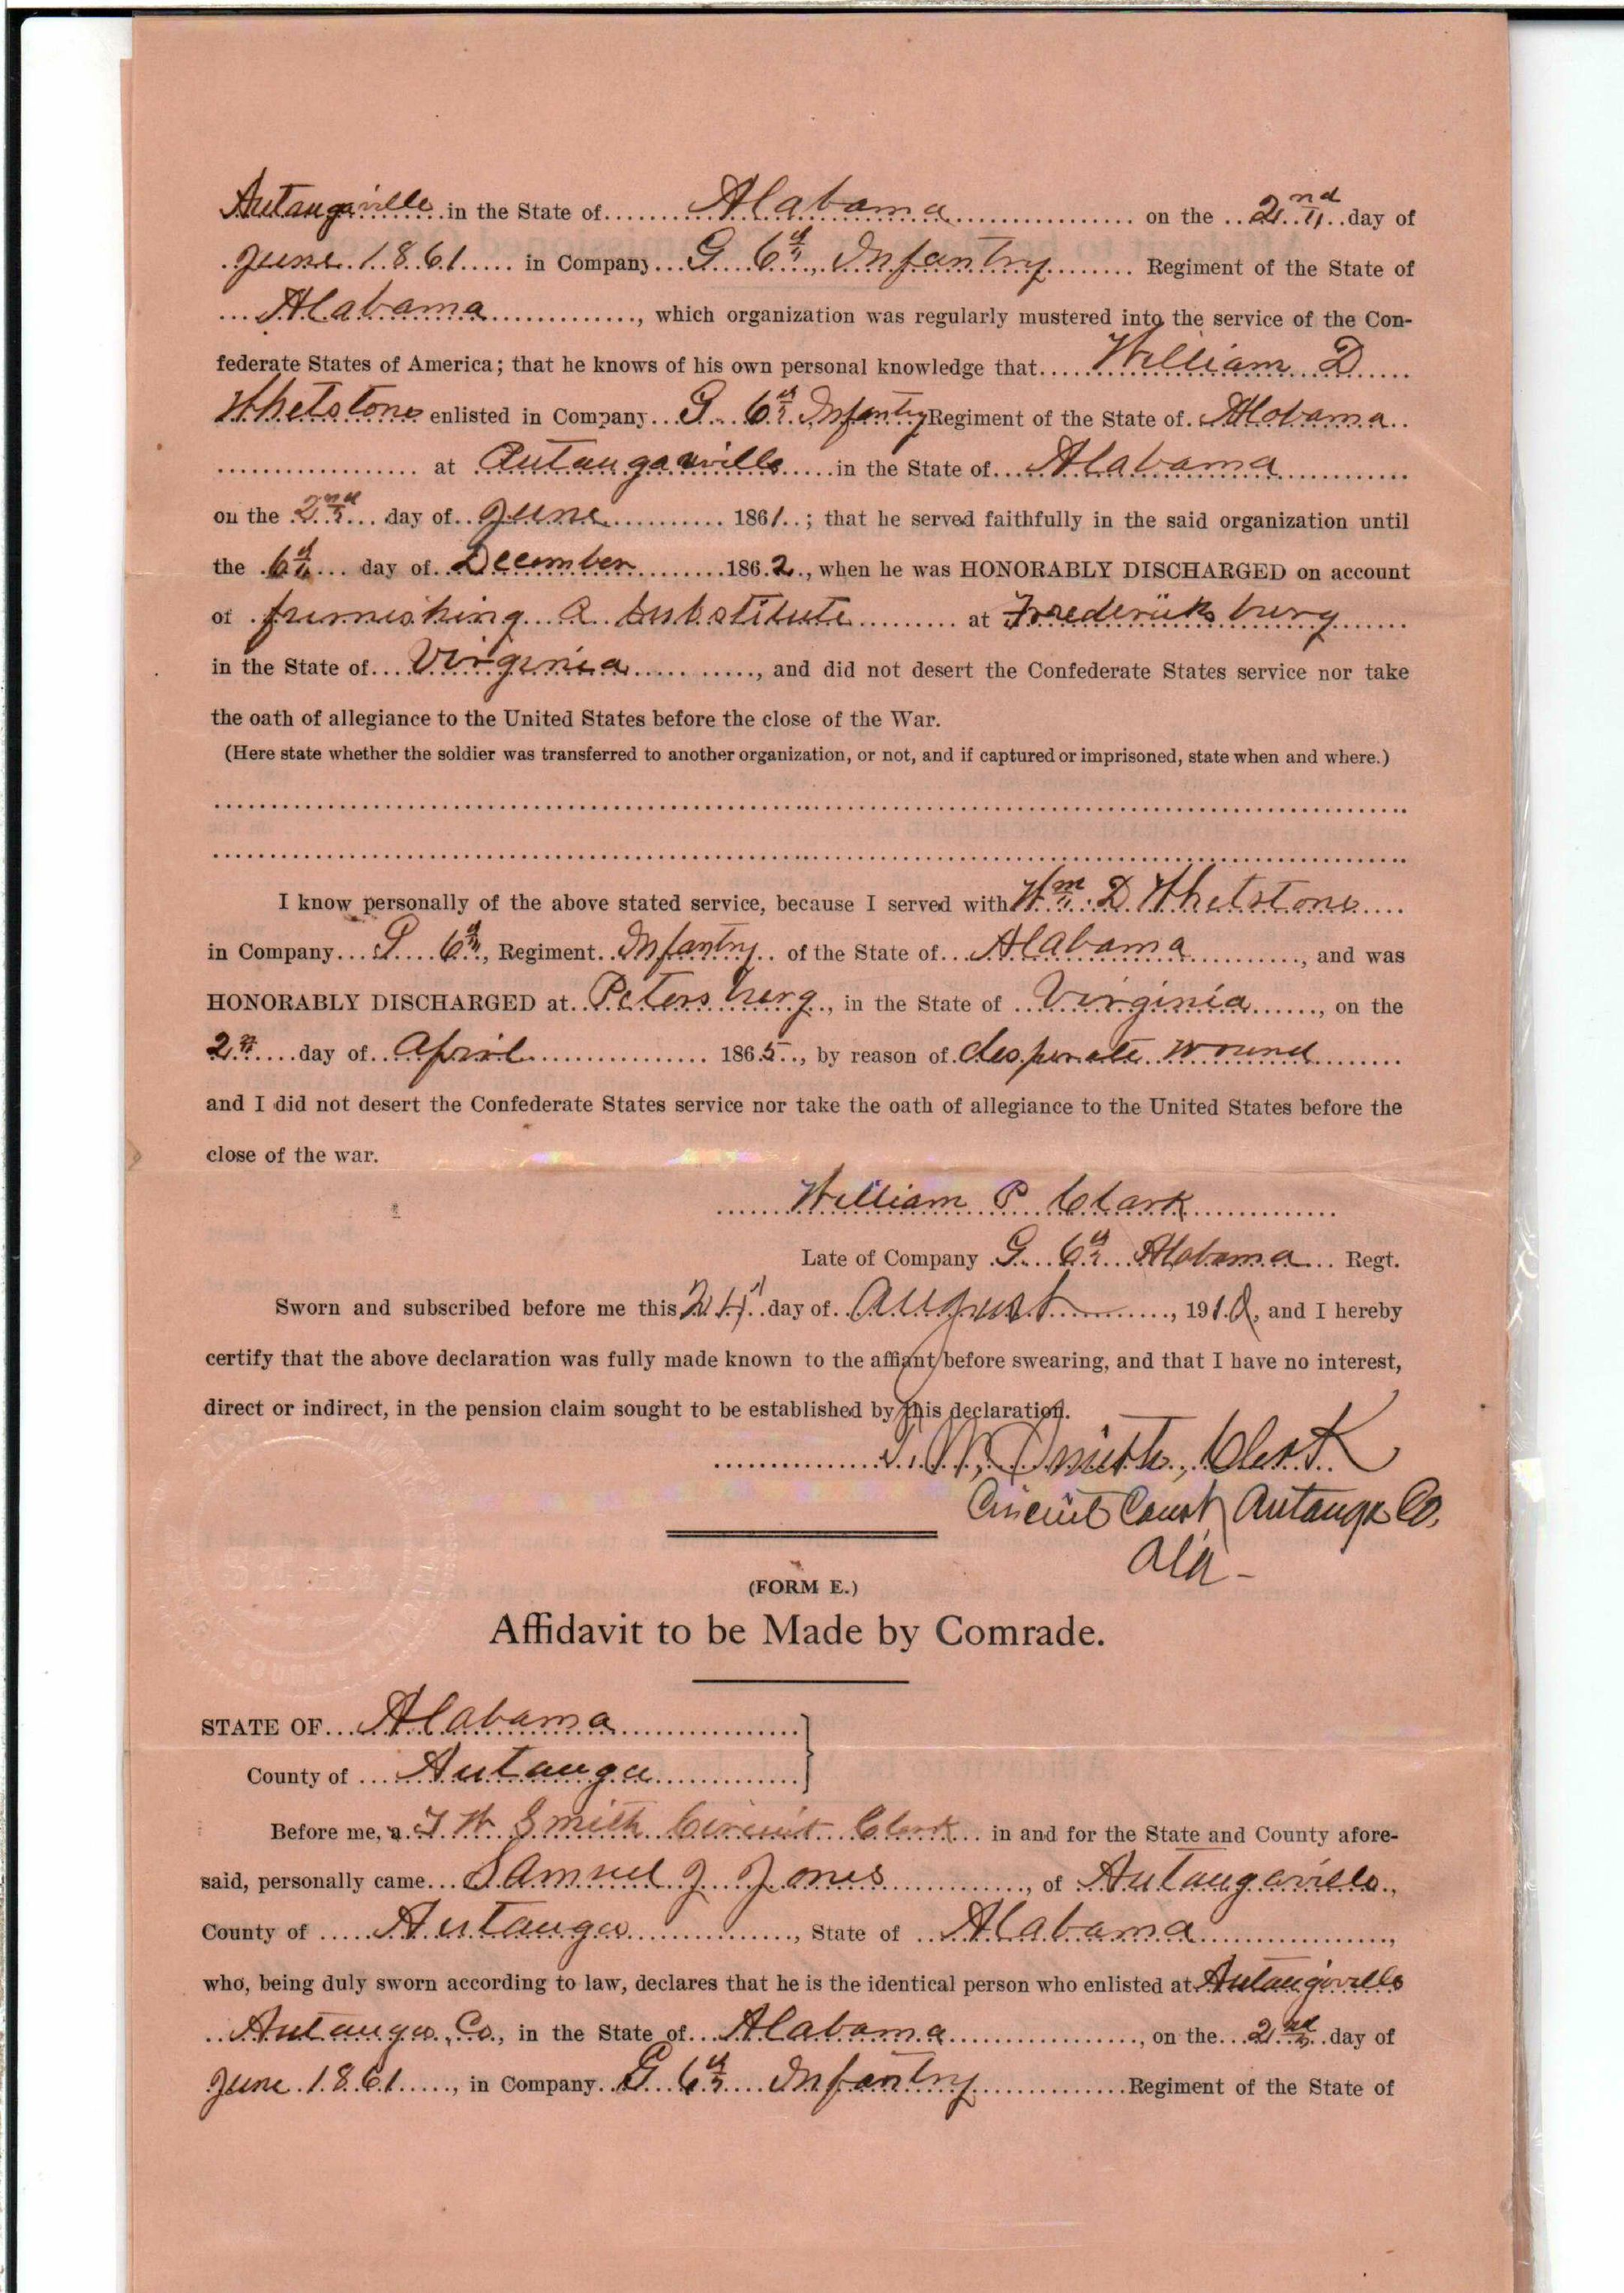 Autaugaville in the State of Alabama on the 2nd day of
June 1861 in Company G 6th, Infantry Regiment of the State of
Alabama, which organization was regularly mustered into the service of the Con-
federate States of America; that he knows of his own personal knowledge that William D
Whetstone enlisted in Company G 6th Infantry Regiment of the State of Alabama
at Autaugaville in the State of Alabama
on the 2nd day of June 1861; that he served faithfully in the said organization until
the 6th day of December 1862, when he was HONORABLY DISCHARGED on account
of furnishing a substitute at Fredericksburg
in the State of Virginia, and did not desert the Confederate States service nor take
the oath of allegiance to the United States before the close of the War.
(Here state whether the soldier was transferred to another organization, or not, and if captured or imprisoned, state when and where.)
I know personally of the above stated service, because I served with Wm D Whetstone
in Company G 6th, Regiment Infantry of the State of Alabama, and was
HONORABLY DISCHARGED at Petersburg, in the State of Virginia, on the
2nd day of April 1865, by reason of desperate wound
and I did not desert the Confederate States service nor take the oath of allegiance to the United States before the
close of the war.
William P Clark
Late of Company G 6th Alabama Regt.
Sworn and subscribed before me this 24" day of August, 1910, and I hereby
certify that the above declaration was fully made known to the affiant before swearing, and that I have no interest,
direct or indirect, in the pension claim sought to be established by this declaration.
Smith, Clerk
Circuit Court Autauga Co,
Ala-
(FORM E.)
Affidavit to be Made by Comrade.
STATE OF Alabama
County of Autauga
Before me, a T W Smith Circuit Clerk in and for the State and County afore-
said, personally came Samuel J Jones, of Autaugaville,
County of Autauga, State of Alabama,
who, being duly sworn according to law, declares that he is the identical person who enlisted at Autaugaville
Autauga, Co, in the State of Alabama, on the 2nd day of
June 1861, in Company G 6th Infantry Regiment of the State of